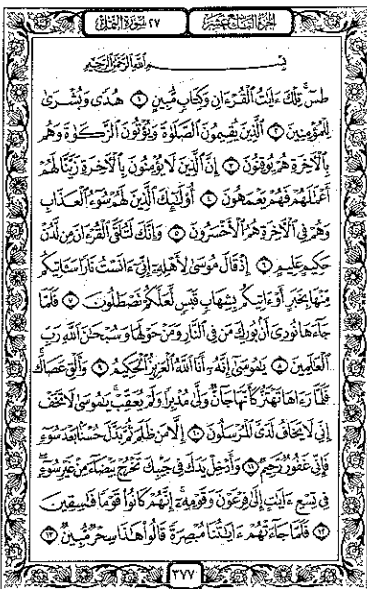 الجزء التاسع عشر
٢٧ سورة النمل
بسم الله الرحمن الرحيم
طسٓ تِلْكَ ءَايَٰتُ ٱلْقُرْءَانِ وَكِتَابٍ مُّبِينٍ ١ هُدًى وَبُشْرَىٰ
لِلْمُؤْمِنِينَ ٢ ٱلَّذِينَ يُقِيمُونَ ٱلصَّلَوٰةَ وَيُؤْتُونَ ٱلزَّكَوٰةَ وَهُم
بِٱلْءَاخِرَةِ هُمْ يُوقِنُونَ ٣ إِنَّ ٱلَّذِينَ لَا يُؤْمِنُونَ بِٱلْءَاخِرَةِ زَيَّنَّا لَهُمْ
أَعْمَٰلَهُمْ فَهُمْ يَعْمَهُونَ ٤ أُو۟لَٰٓئِكَ ٱلَّذِينَ لَهُمْ سُوٓءُ ٱلْعَذَابِ
وَهُمْ فِى ٱلْءَاخِرَةِ هُمُ ٱلْأَخْسَرُونَ ٥ وَإِنَّكَ لَتُلَقَّى ٱلْقُرْءَانَ مِن لَّدُنْ
حَكِيمٍ عَلِيمٍ ٦ إِذْ قَالَ مُوسَىٰ لِأَهْلِهِۦٓ إِنِّىٓ ءَانَسْتُ نَارًا سَـَٔاتِيكُم
مِّنْهَا بِخَبَرٍ أَوْ ءَاتِيكُم بِشِهَابٍ قَبَسٍ لَّعَلَّكُمْ تَصْطَلُونَ ٧ فَلَمَّا
جَآءَهَا نُودِىَ أَنۢ بُورِكَ مَن فِى ٱلنَّارِ وَمَنْ حَوْلَهَا وَسُبْحَٰنَ ٱللَّهِ رَبِّ
ٱلْعَٰلَمِينَ ٨ يَٰمُوسَىٰٓ إِنَّهُۥٓ أَنَا ٱللَّهُ ٱلْعَزِيزُ ٱلْحَكِيمُ ٩ وَأَلْقِ عَصَاكَ
فَلَمَّا رَءَاهَا تَهْتَزُّ كَأَنَّهَا جَآنٌّ وَلَّىٰ مُدْبِرًا وَلَمْ يُعَقِّبْ يَٰمُوسَىٰ لَا تَخَفْ
إِنِّى لَا يَخَافُ لَدَىَّ ٱلْمُرْسَلُونَ ١٠ إِلَّا مَن ظَلَمَ ثُمَّ بَدَّلَ حُسْنًۢا بَعْدَ سُوٓءٍ
فَإِنِّى غَفُورٌ رَّحِيمٌ ١١ وَأَدْخِلْ يَدَكَ فِى جَيْبِكَ تَخْرُجْ بَيْضَآءَ مِنْ غَيْرِ سُوٓءٍ
فِى تِسْعِ ءَايَٰتٍ إِلَىٰ فِرْعَوْنَ وَقَوْمِهِۦٓ إِنَّهُمْ كَانُوا۟ قَوْمًا فَٰسِقِينَ
١٢ فَلَمَّا جَآءَتْهُمْ ءَايَٰتُنَا مُبْصِرَةً قَالُوا۟ هَٰذَا سِحْرٌ مُّبِينٌ ١٣
٣٧٧